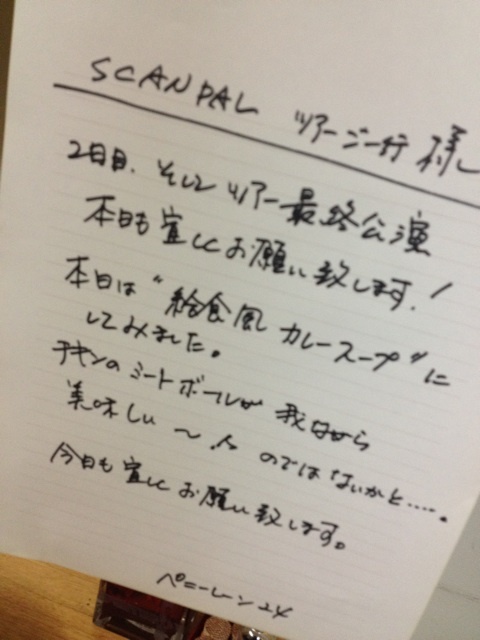 SCANDAL ツアーご一行 様
2日目、そしてツアー最終公演
本日も宜しくお願い致します!
本日は"給食風カレースープ"に
してみました。
チキンのミートボールが 我ながら
美味しい 〜 のではないかと‥‥。
今日も宜しくお願い致します。
ペニーレーン24